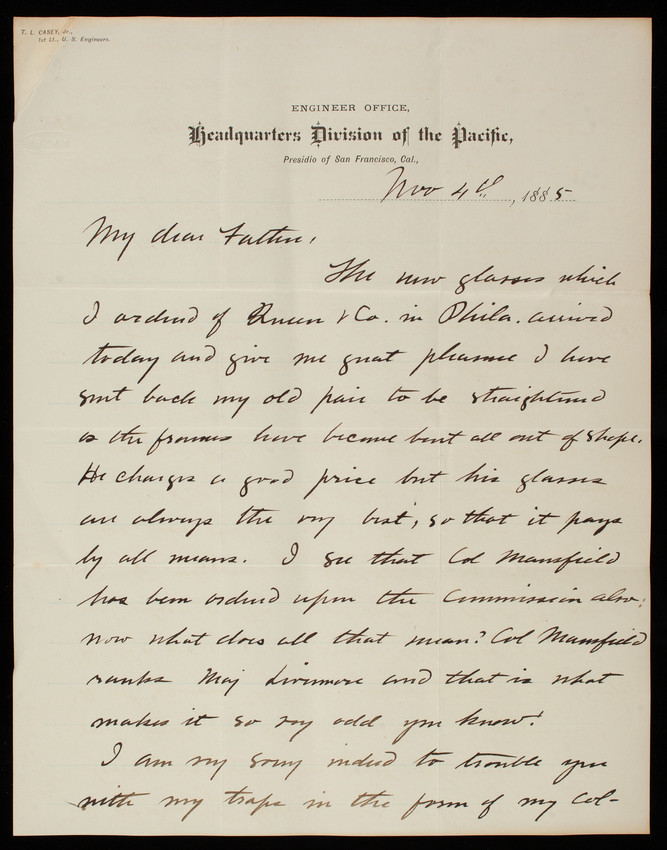 T. L. CASEY, Jr.,
1st Lt., U. S. Engineers.
ENGINEER OFFICE,
Headquarters Division of the Pacific,
Presidio of San Francisco, Cal.,
Nov 4th, 1885
My dear Father,
The new glasses which
I ordered of Queen & Co. in Phila. arrived
today and give me great pleasure I have
sent back my old pair to be straightened
as the frames have become bent all out of shape.
He charges a good price but his glasses
are always the very best, so that it pays
by all means. I see that Col Mansfield
has been ordered upon the Commission also;
now what does all that mean? Col Mansfield
ranks Maj Livermore and that is what
makes it so very odd you know!
I am very sorry indeed to trouble you
with my traps in the form of my Col-